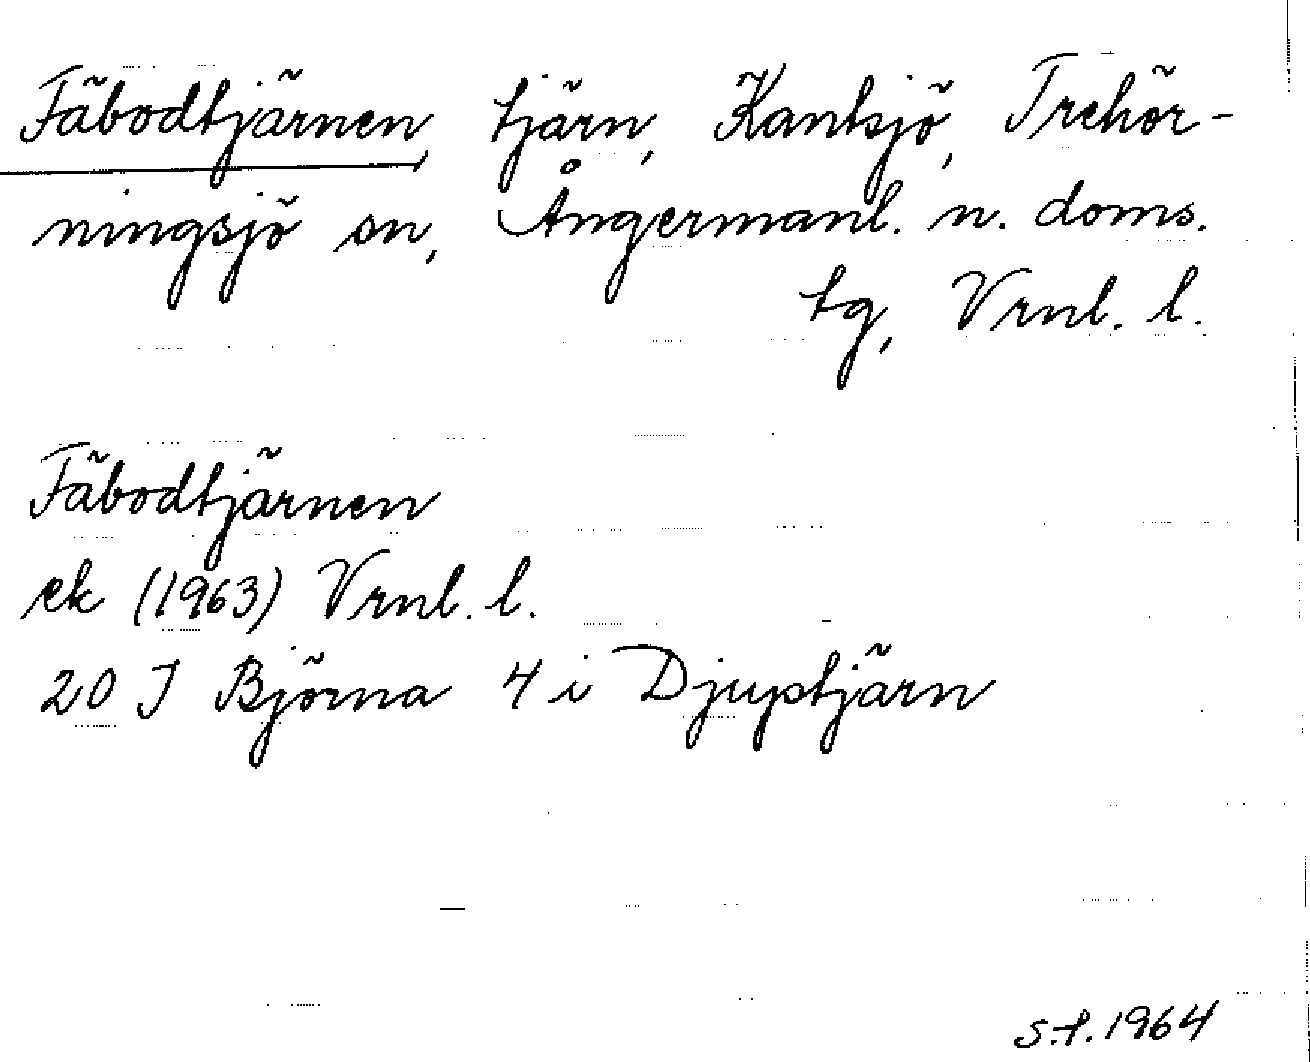 Fäbodtjärnen, tjärn, Kantsjö, Trehör-
ningsjö sn, Ångermanl. n. doms.
tg, Vrnl. l.
Fäbodtjärnen
ek (1963) Vrnl. l.
20 I Björna 4 i Djuptjärn
S.F. 1964